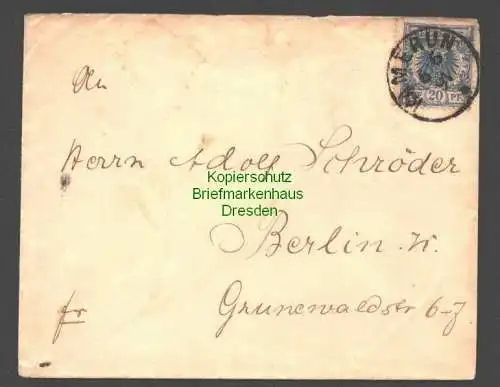 KAMERUN
20 PF
An
Herrn Adolf Schröder
Kopierschutz
Briefmarkenhaus
Dresden
Berlin. W.
Grunewaldstr 6-7
fr